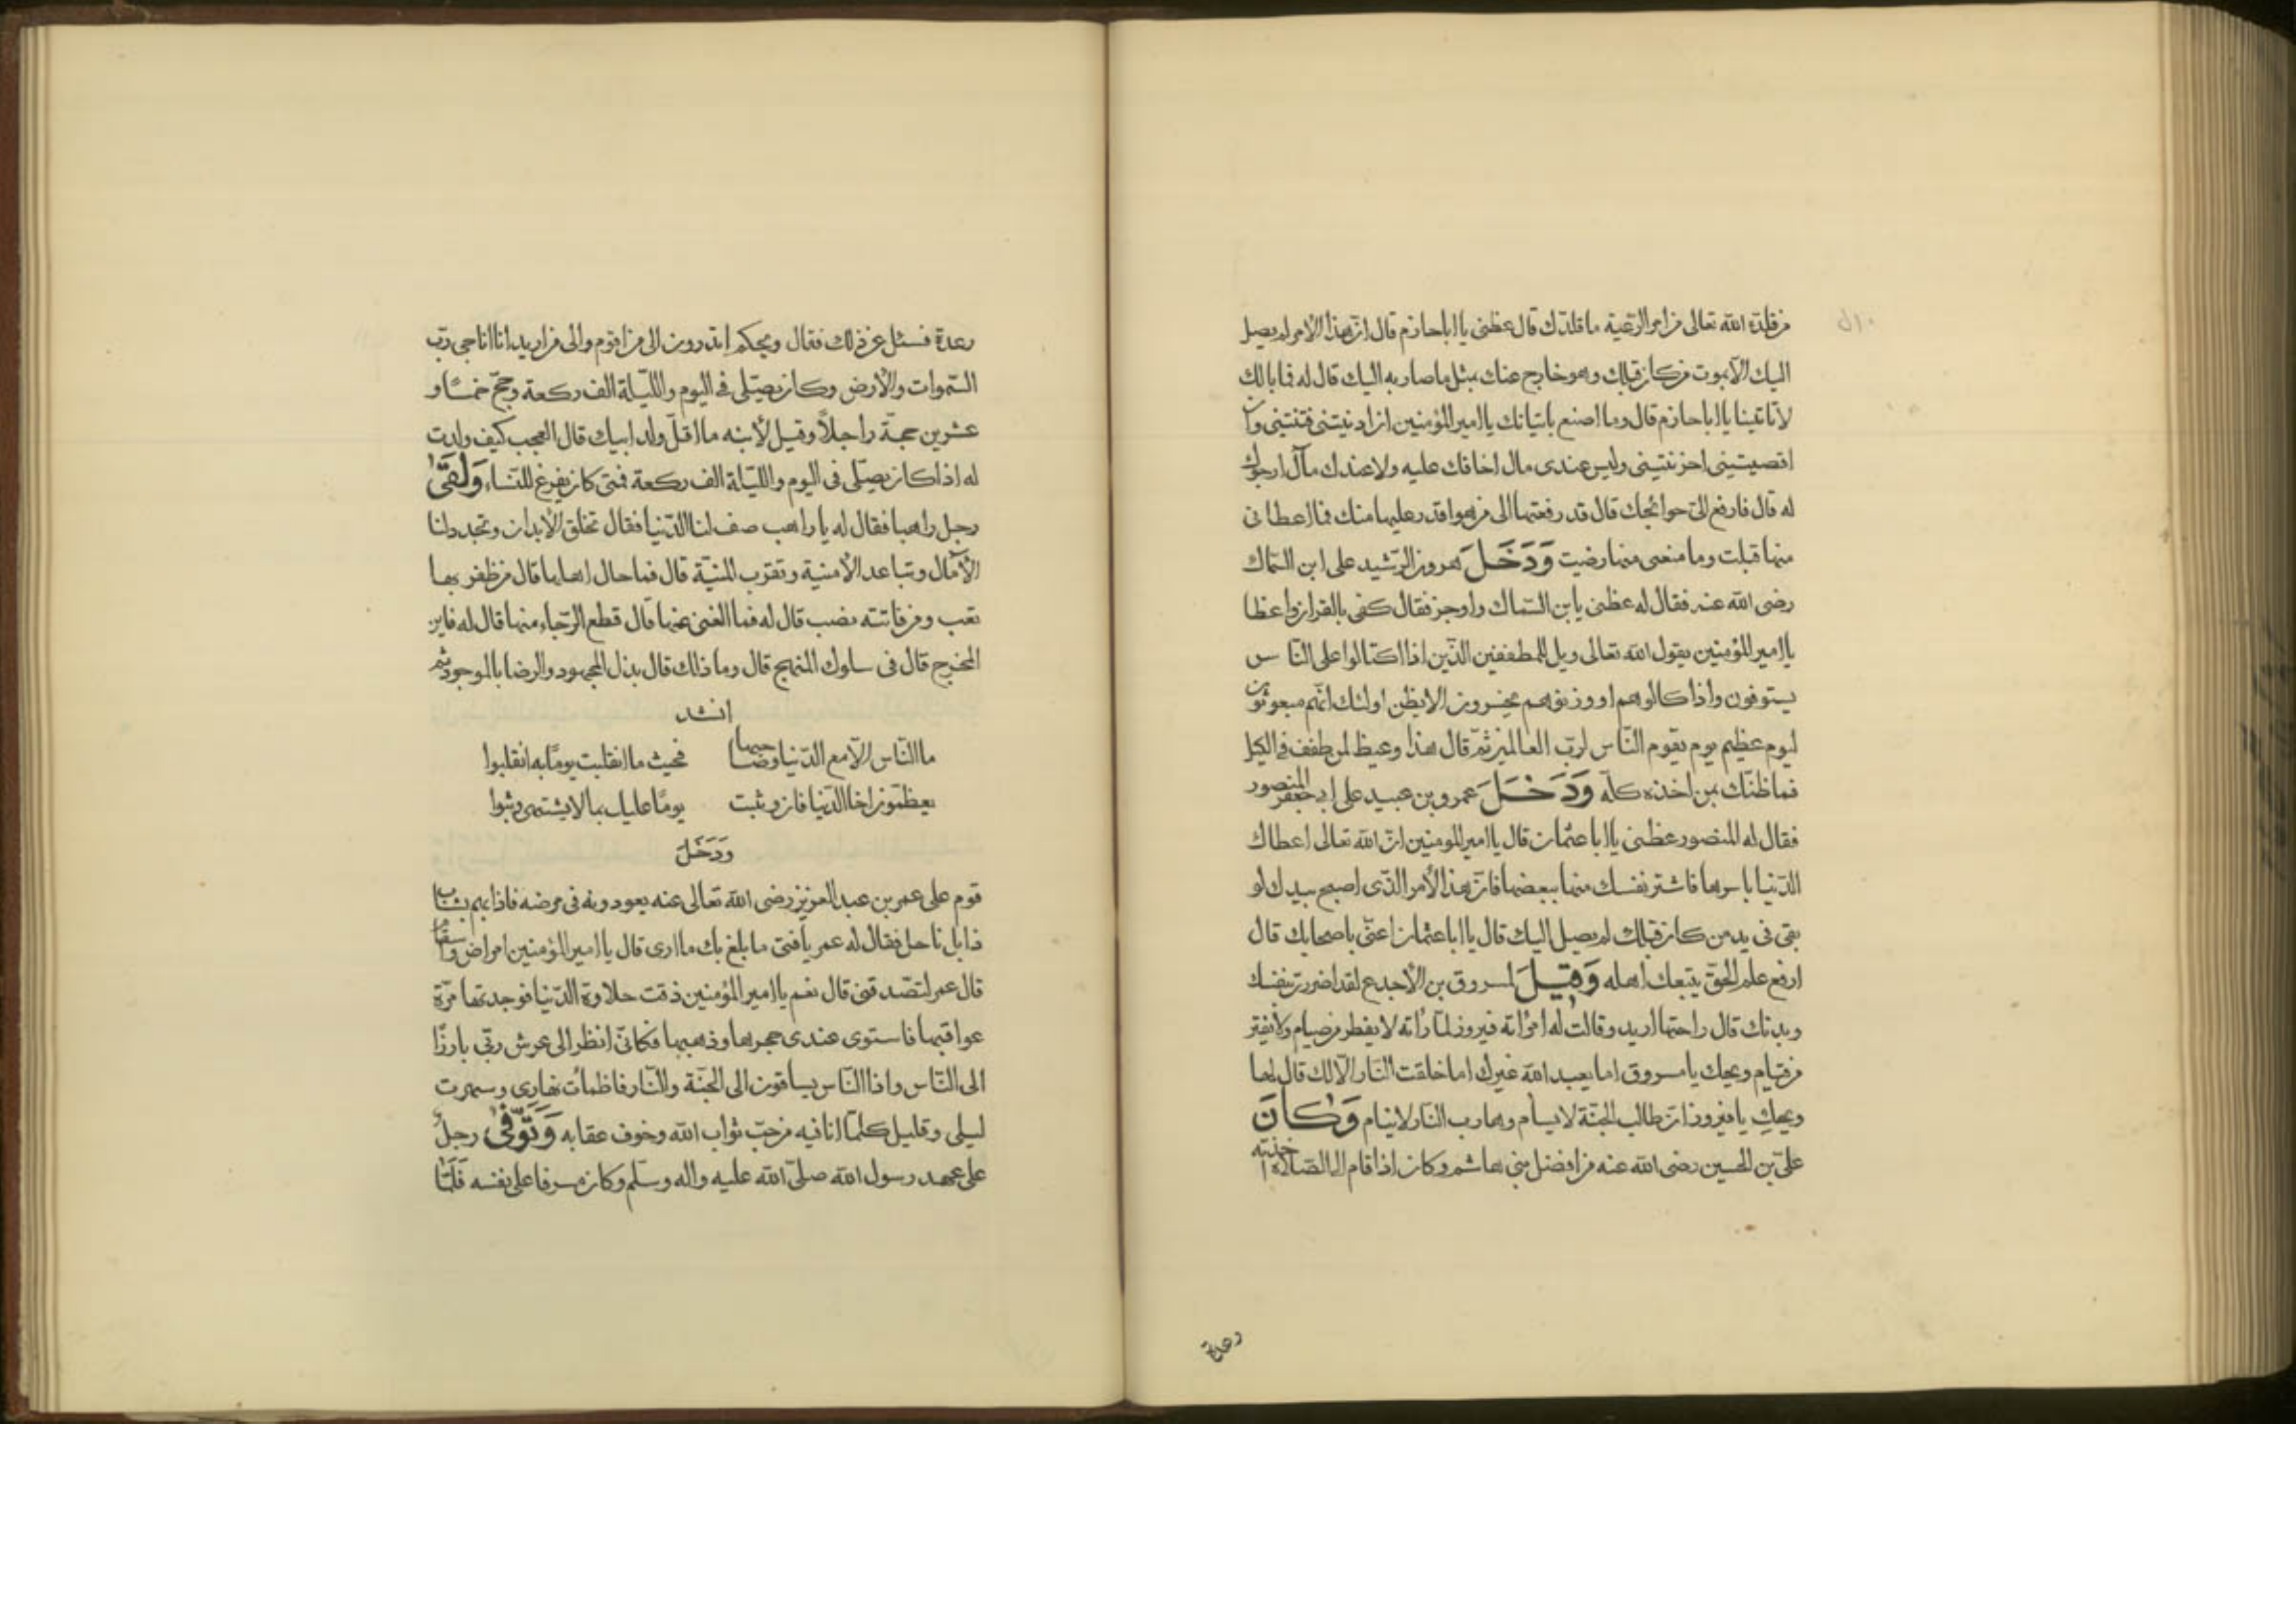 من قلده الله تعالى من امر الرعية ما قلدك قال عظنى يا ابا حازم قال ان هذا الامر لم يصل
اليك الا بموت من كان قبلك وهو خارج عنك بمثل ما صار به اليك قال له فما بالك
لا تاتينا يا ابا حازم قال وما اصنع باتيانك يا امير المؤمنين ان ادنيتنى فتنتنى وان
اقصيتينى احزنتينى وليس عندى مال اخافك عليه ولا عندك مال ارجوك
له قال فارفع الىّ حوائجك قال قد رفعتها الى من هو اقدر عليها منك فما اعطانى
منها قبلت وما منعنى منها رضيت وَدَخَلَ هرون الرّشيد على ابن السّماك
رضى الله عنه فقال له عظنى يا بن السّماك واوجز فقال كفى بالقران واعظا
يا امير المؤمنين يقول الله تعالى ويل للمطففين الّذين اذا اكتالوا على النّاس
يستوفون واذا كالوهم او وزنوهم يخسرون الا يظن اولئك انّهم مبعوثون
ليوم عظيم يوم يقوم النّاس لربّ العالمين ثمّ قال هذا وعيظ لمن طفف فى الكيل
فما ظنّك بمن اخذه كلّه وَدَخَلَ عمرو بن عبيد على ابى جعفر المنصور
فقال له المنصور عظنى يا ابا عثمان قال يا امير المومنين انّ الله تعالى اعطاك
الدّنيا باسرها فاشتر نفسك منها ببعضها فانّ هذا الأمر الّذى اصبح بيدك لو
بقى فى يد من كان قبلك لم يصل اليك قال يا ابا عثمان اعنّى باصحابك قال
ارفع علم الحقّ يتبعك اهله وَقِيلَ لمسروق بن الأجدع لقد اضررت بنفسك
وبدنك قال راحتها اريد وقالت له امرأته فيروز لمّا رأته لا يفطر من صيام ولا يفتر
من قيام ويحك يا مسروق اما يعبد الله غيرك اما خلقت النّار الّا لك قال لها
ويحكِ يا فيروز انّ طالب الجنّة لا يسأم وهارب النّار لا ينام وَكَانَ
علىّ بن الحسين رضى الله عنه من افضل بنى هاشم وكان اذا قام الى الصّلاة اخذته
رعدة
رعدة فسئل عن ذلك فقال ويحكم اتدرون الى من اقوم والى من اريد انا اناجى ربّ
السّموات والأرض وكان يصلّى فى اليوم واللّيلة الف ركعة وحجّ خمسًا و
عشرين حجّة راجلًا وقيل لأبنه ما اقلّ ولد ابيك قال العجب كيف ولدت
له اذا كان يصلّى فى اليوم واللّيلة الف ركعة فمتى كان يفرغ للنّساء وَلَقَىٰ
رجل راهبا فقال له يا راهب صف لنا الدّنيا فقال تخلق الأبدان وتجدد لنا
الآمال وتباعد الأمنية وتقرّب المنيّة قال فما حال اهلها قال من ظفر بها
تعب ومن فاتته نصب قال له فما الغنى عنها قال قطع الرّجاء منها قال له فاين
المخرج قال فى سلوك المنهج قال وما ذلك قال بذل المجهود والرضا بالموجود ثم
انشد
ما النّاس الّا مع الدّنيا وصاحبها فحيث ما انقلبت يومًا به انقلبوا
يعظّمون اخا الدّنيا فان وثبت يومًا عليل بما لا يشتهى وثبوا
وَدَخَلَ
قوم على عمر بن عبد العزيز رضى الله تعالى عنه يعودونه فى مرضه فاذا بهم بشاب
ذابل ناحل فقال له عمر يا فتى ما بلغ بك ما ارى قال يا امير المؤمنين امراض واسقام
قال عمر لتصّدقنى قال نعم يا امير المؤمنين ذقت حلاوة الدّنيا فوجدتها مرّة
عواقبها فاستوى عندى حجرها وذهبها فكانّى انظر الى عرش ربّى بارزًا
الى النّاس واذا النّاس يساقون الى الجنّة والنّار فاظمأت نهارى وسهرت
ليلى وقليل كلّما انا فيه من حبّ ثواب الله وخوف عقابه وَتَوّفىٰ رجلٌ
على عهد رسول الله صلّى الله عليه واله وسلّم وكان مسرفا على نفسه فَلَمّا